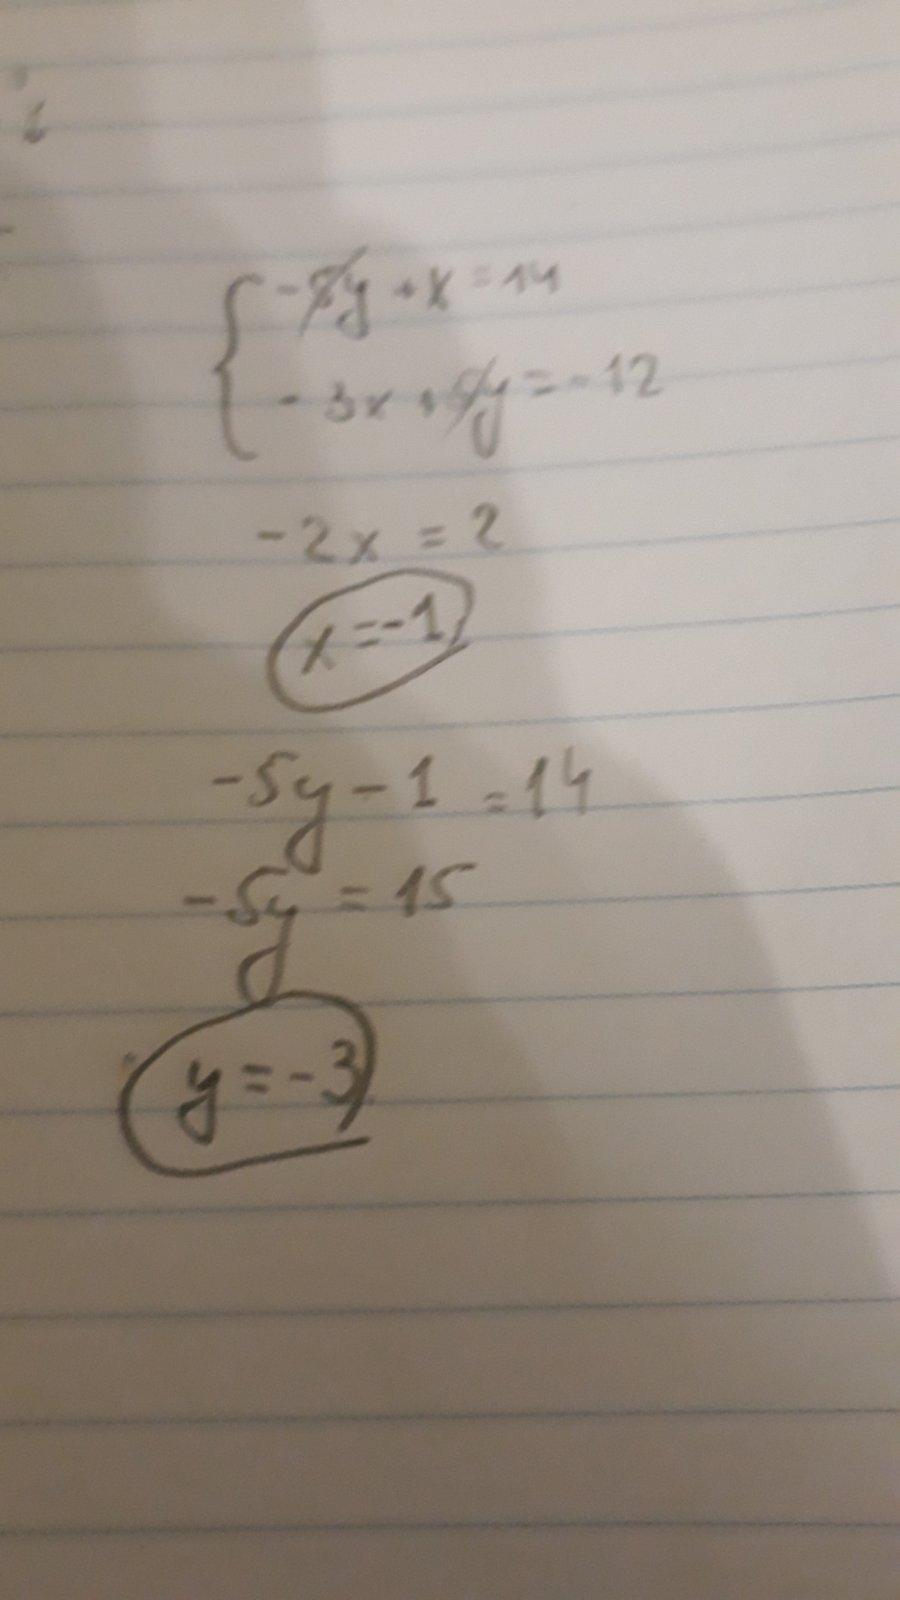 -5y + x = 14
- 3x + 5y = - 12
-2x = 2
x = -1
-5y - 1 = 14
-5y = 15
y = -3